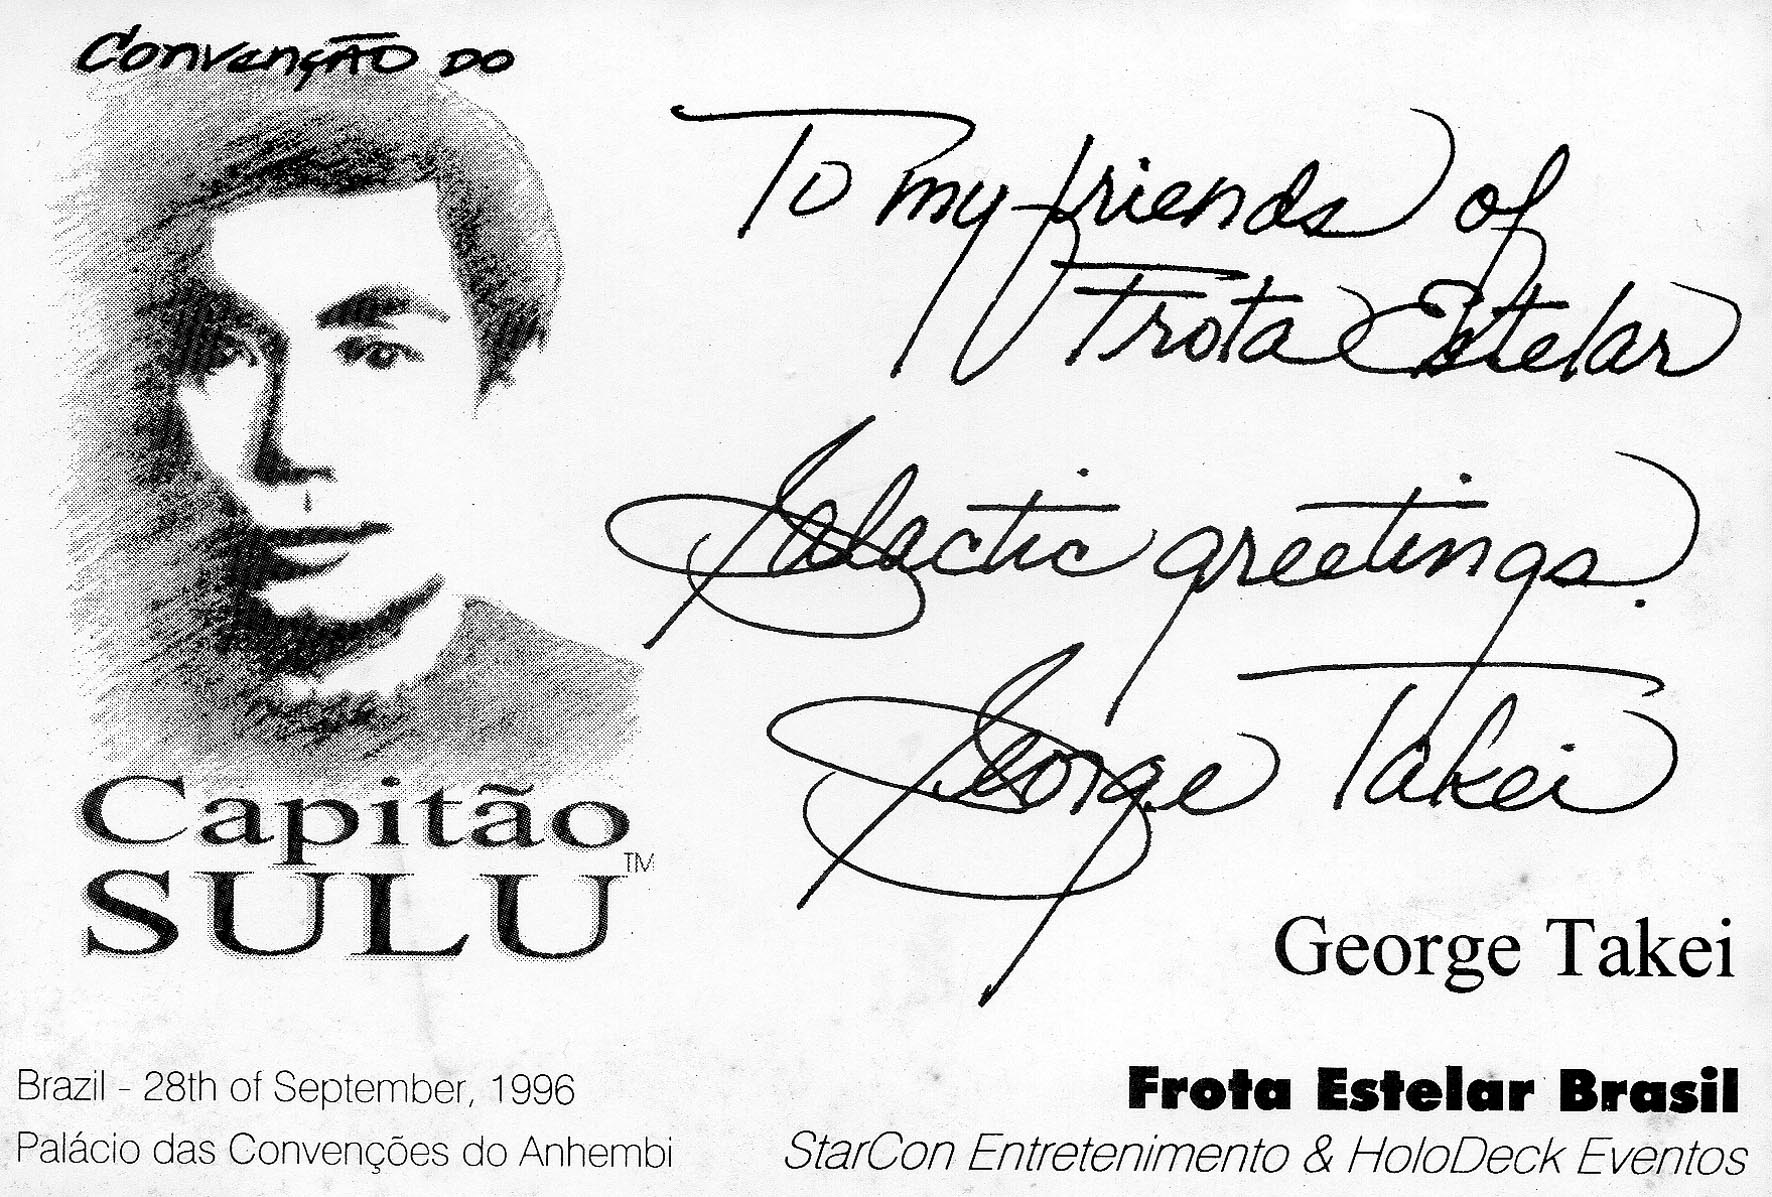 Convenção do
Capitão
SULU™
To my friends of
Frota Estelar
Galactic greetings!
George Takei
George Takei
Brazil - 28th of September, 1996
Palácio das Convenções do Anhembi
Frota Estelar Brasil
StarCon Entretenimento & HoloDeck Eventos